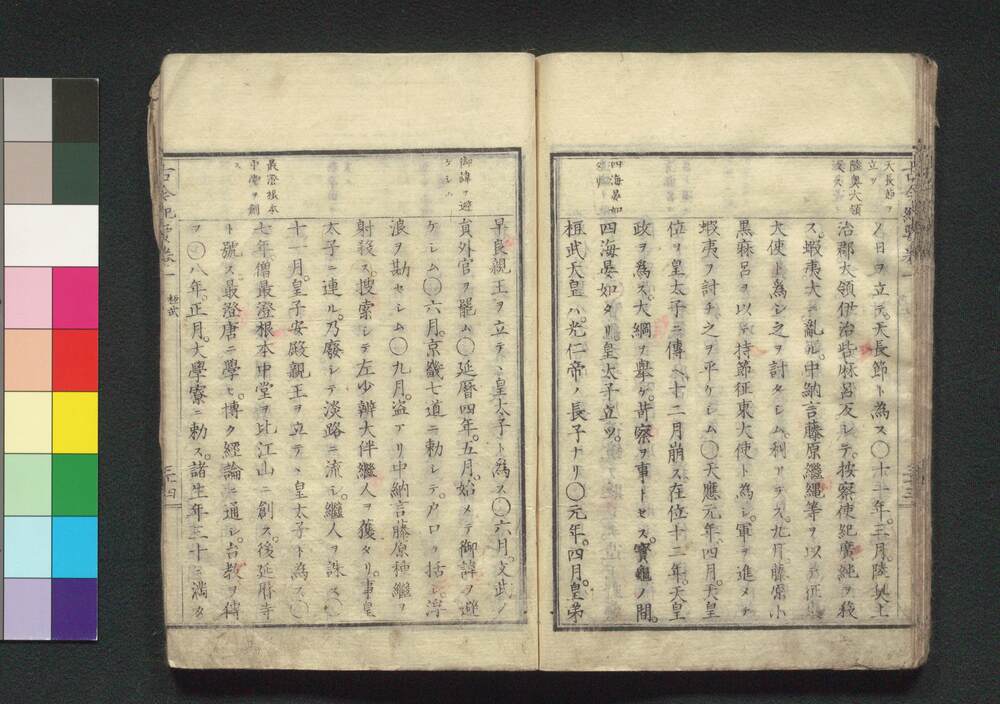 天長節ヲ
立ツ
陸奥大領
ノ日ヲ立テ。天長節ト為ス○十一年。三月。陸奥上
治郡大領伊治呰麻呂反シテ。按察使紀廣純ヲ殺
ス。蝦夷大ニ亂ル。中納言藤原繼縄等ヲ以テ征東
大使ト為シ之ヲ討タシム。利アラス。九月。藤原小
黒麻呂ヲ以テ持節征東大使ト為シ。軍ヲ進メテ
蝦夷ヲ討チ之ヲ平ケシム○天應元年。四月。天皇
位ヲ皇太子ニ傳ヘ十二月崩ス在位十二年。天皇
政ヲ為ス。大綱ヲ舉ケ。苛察ヲ事トセス。寳龜ノ間。
四海晏如
四海晏如タリ。皇太子立ツ。
桓武天皇ハ。光仁帝ノ長子ナリ○元年。四月。皇弟
三十三
早良親王ヲ立テヽ皇太子ト為ス○六月。文武ノ
御諱ヲ避
ケシム
員外官ヲ罷ム○延暦四年。五月。始メテ御諱ヲ避
ケシム○六月。京畿七道ニ勅シテ。戸口ヲ括シ。浮
浪ヲ勘セシム○九月。盗アリ中納言藤原種繼ヲ
射殺ス。搜索シテ左少辨大伴繼人ヲ獲タリ。事皇
太子ニ連ル。乃廢シテ淡路ニ流シ。繼人ヲ誅ス○
十一月。皇子安殿親王ヲ立テヽ皇太子ト為ス○
最澄根本
中堂ヲ創
ス
七年。僧最澄根本中堂ヲ比江山ニ創ス。後延暦寺
ト號ス最澄唐ニ學ヒ。博ク經論ニ通シ。台教ヲ傳
フ○八年。正月。大學寮ニ勅ス。諸生年三十ニ満タ
桓武
三十四